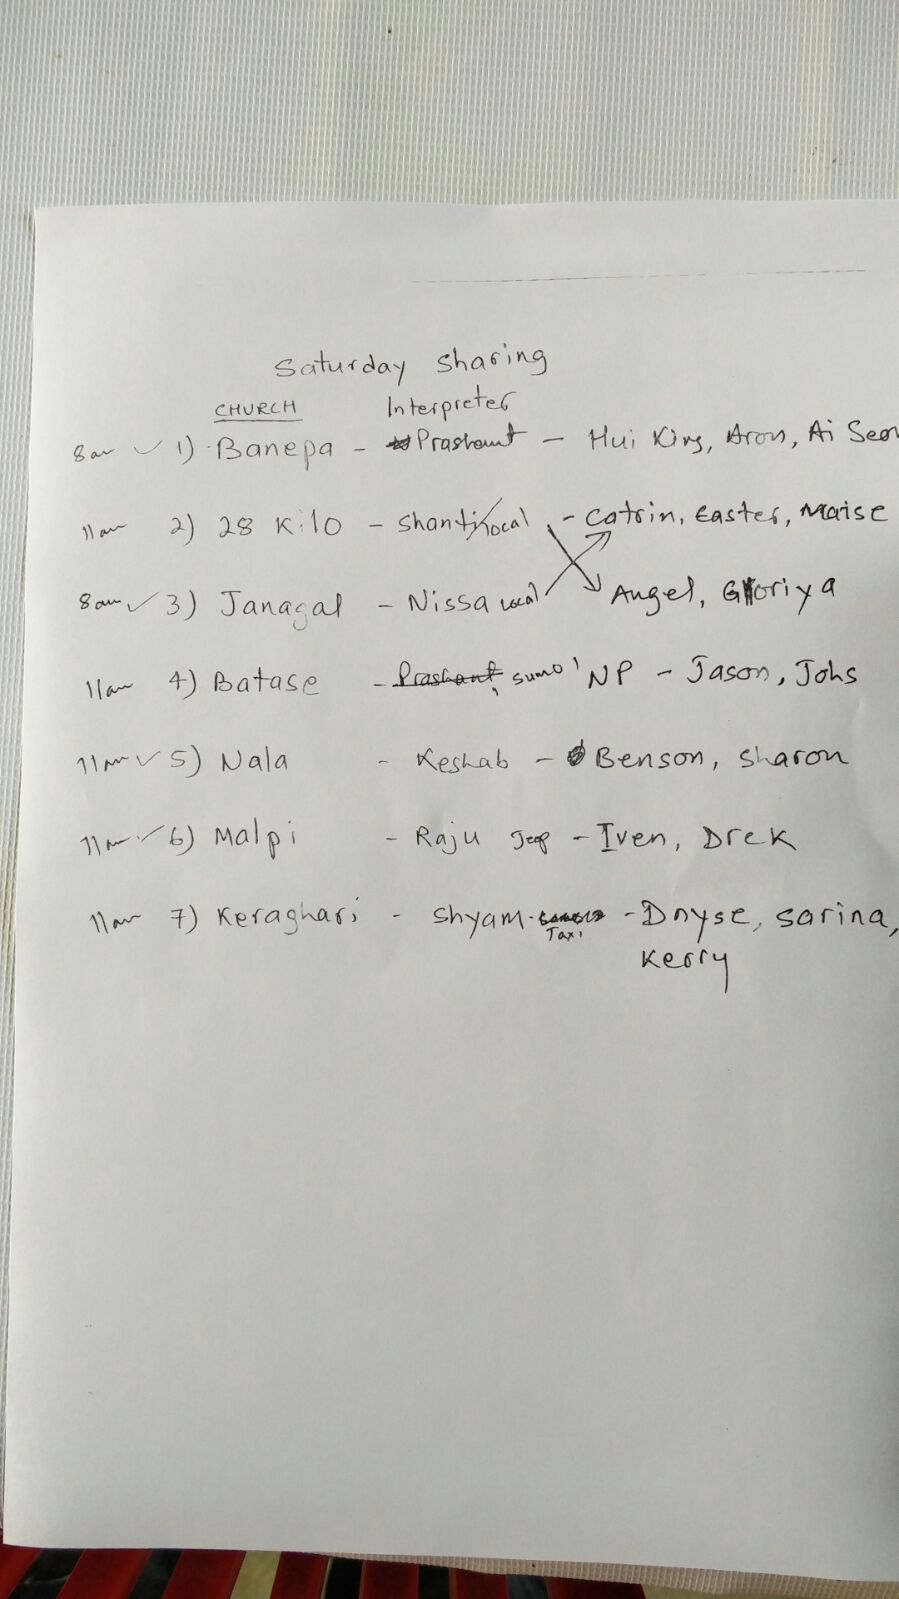 Saturday Sharing
CHURCH Interpreter
8am ✓ 1) Banepa - Prashant - Hui King, Aron, Ai Seon
11am 2) 28 Kilo - Shanti/local - Catrin, Easter, Maise
8am ✓ 3) Janagal - Nissa local Angel, Gloriya
11am 4) Batase - Prashant, sumo' NP - Jason, Johs
11am ✓ 5) Nala - Keshab - Benson, Sharon
11am ✓ 6) Malpi - Raju Jeep - Iven, Drek
11am 7) Keraghari - Shyam - Taxi - Dnyse, Sarina,
Kerry